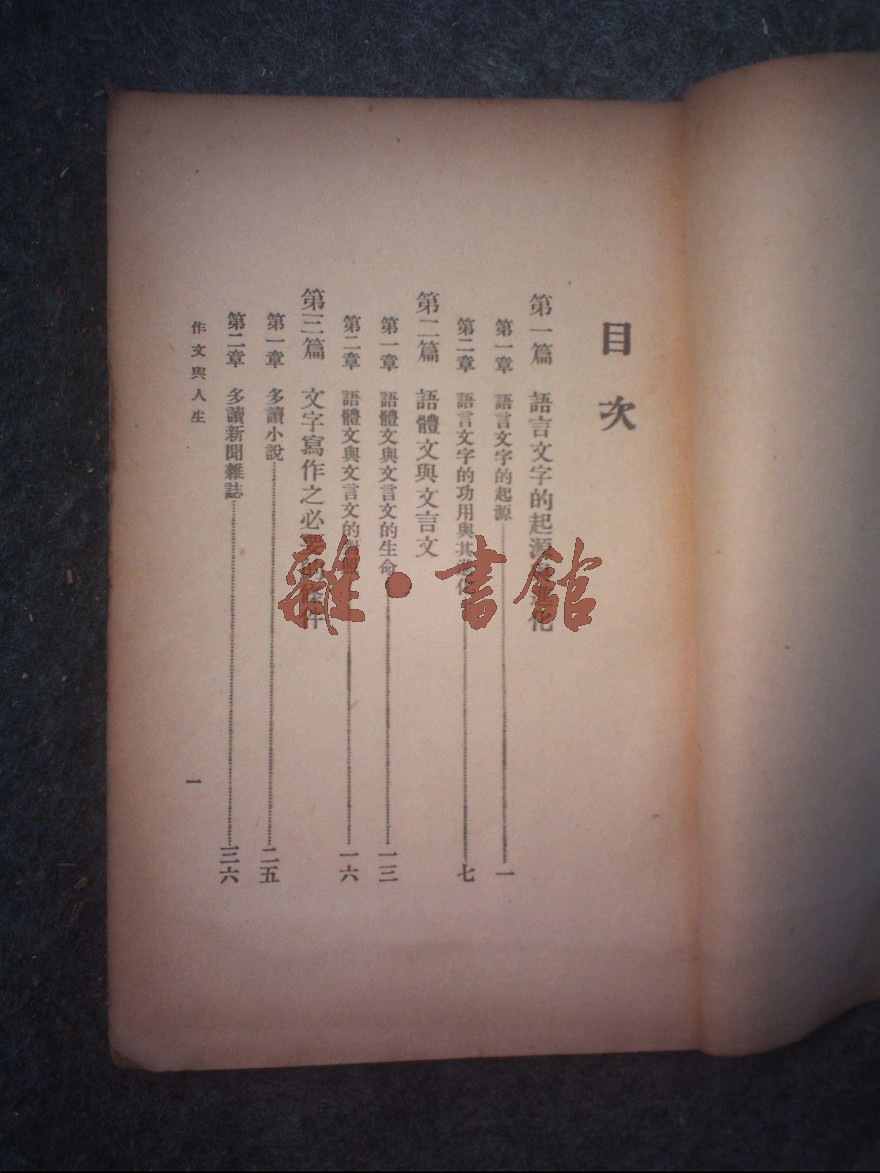 目次
第一篇　語言文字的起源與進化
第一章　語言文字的起源………一
第二章　語言文字的功用與其進化………七
第二篇　語體文與文言文
第一章　語體文與文言文的生命………一三
第二章　語體文與文言文的………一六
第三篇　文字寫作之必要的條件
第一章　多讀小說………二五
第二章　多讀新聞雜誌………三六
作文與人生
一
雜·書館